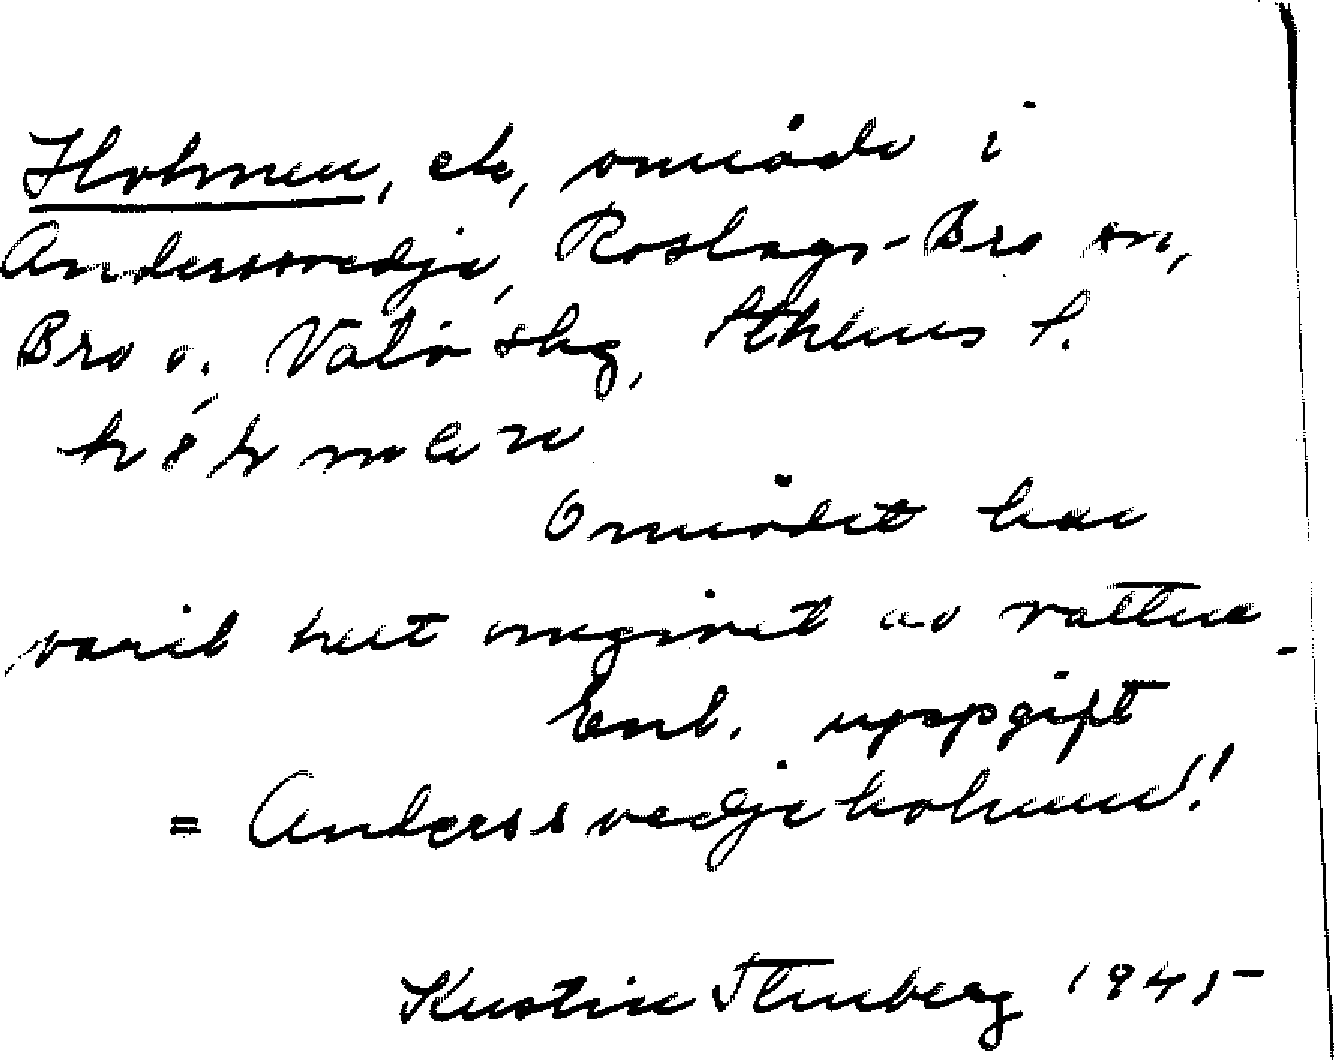 Holmen, ett område i
Anderssvedja, Roslags-Bro sn,
Bro o. Vätö skg, Sthlms l.
Området har
varit helt omgivet av vatten.
Enl. uppgift
= Anderssvedjeholmen!
Kerstin Stenberg 1945